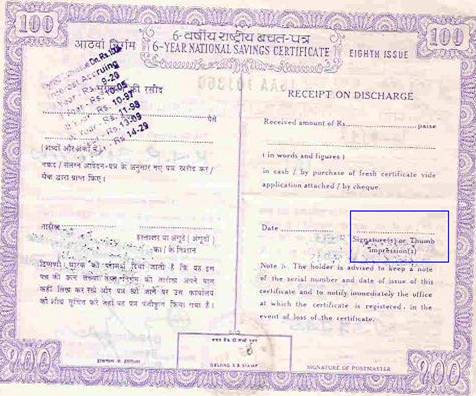 100
100
6-वर्षीय राष्ट्रीय बचत-पत्र
आठवां निर्गम
6-YEAR NATIONAL SAVINGS CERTIFICATE
EIGHTH ISSUE
Accruing
की रसीद
9-20
10-05
10-97
11-98
Rs. 13-09
Rs. 14-29
RECEIPT ON DISCHARGE
पैसे
Received amount of Rs. paise
(शब्दों और अंकों में)
(in words and figures)
नकद / संलग्न आवेदन-पत्र के अनुसार नए पत्र खरीद कर /
चैक द्वारा प्राप्त किए।
in cash / by purchase of fresh certificate vide
application attached / by cheque.
तारीख
हस्ताक्षर या अंगूठे (अंगूठों)
का / के निशान
Date
Signature(s) or Thumb
impression(s)
Note :- The holder is advised to keep a note
of the serial number and date of issue of this
certificate and to notify immediately the office
at which the certificate is registered, in the
event of loss of the certificate.
टिप्पणी धारक को परामर्श दिया जाता है कि वह इस
पत्र की क्रम संख्या तथा निर्गम की तारीख अपने पास
कहीं लिख कर रखे और पत्र खो जाने पर उस कार्यालय
को शीघ्र सूचित करे जहां यह पत्र पंजीकृत किया गया है।
100
100
OBLONG S B STAMP
SIGNATURE OF POSTMASTER